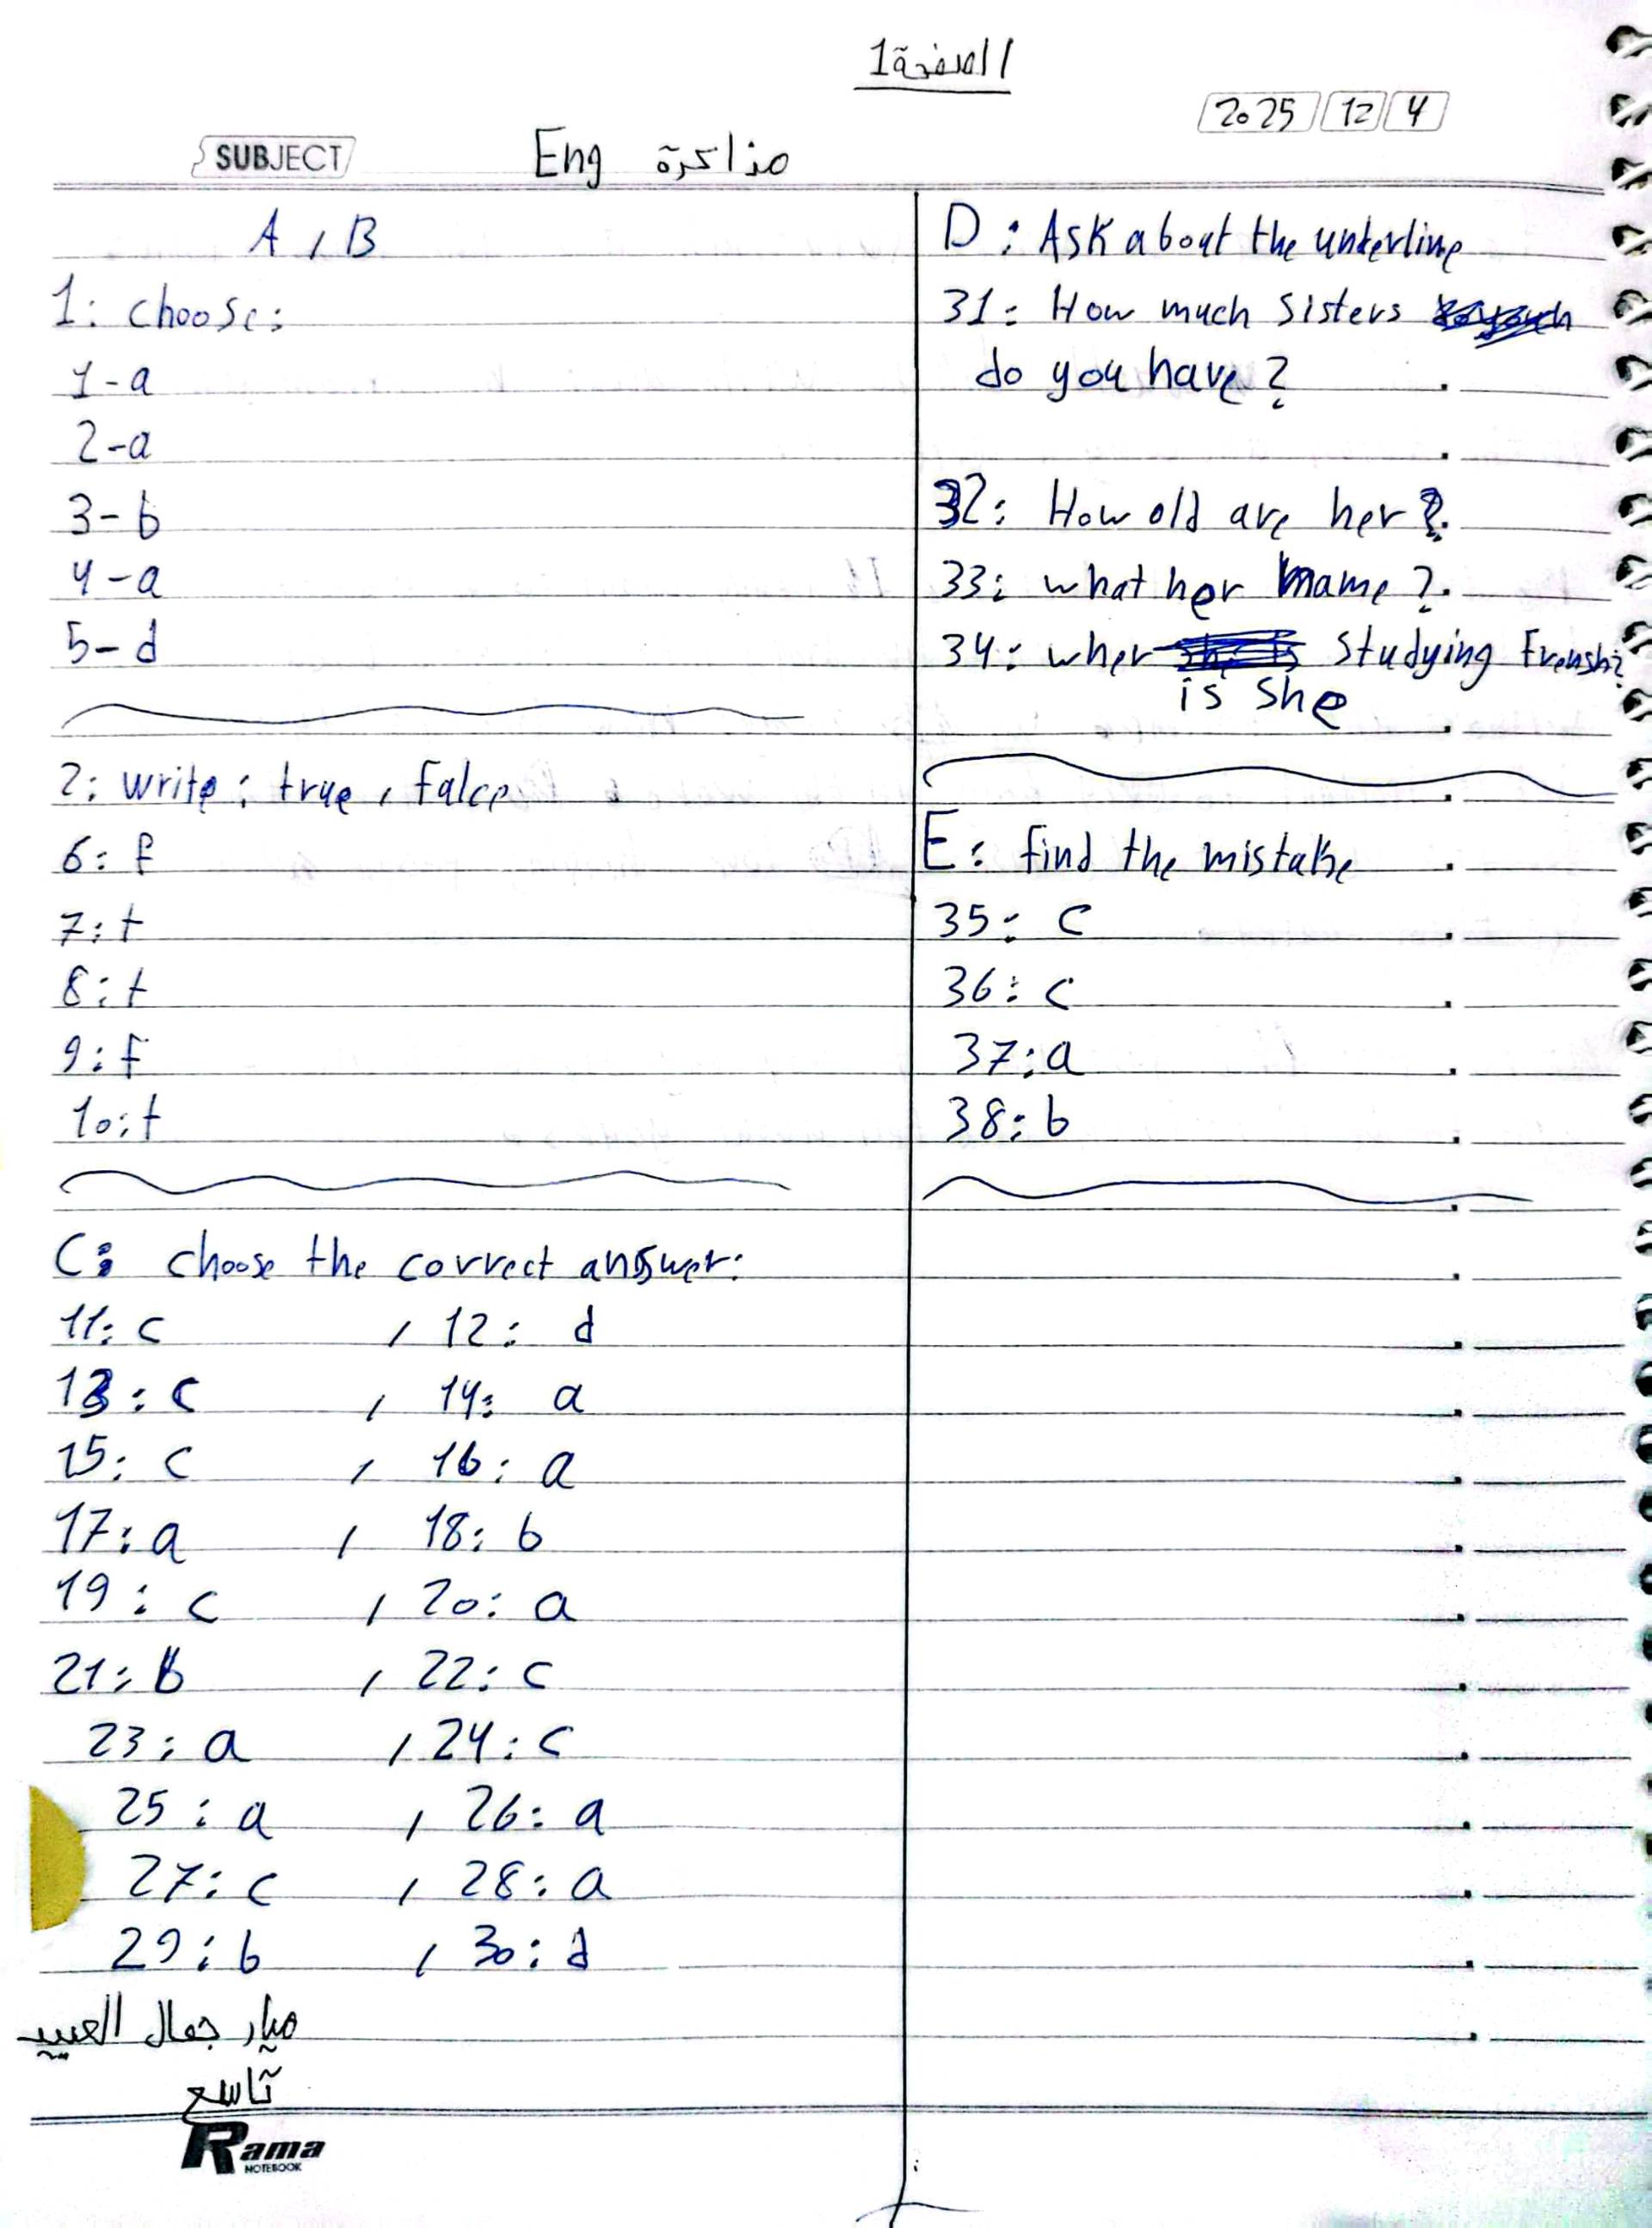 الصفحة 1
2025 12 4
SUBJECT
Eng مذاكرة
A , B
1: choose:
1-a
2-a
3-b
4-a
5-d
2: write: true, falce
6: f
7: t
8: t
9: f
10: t
C: choose the correct answer:
11: c , 12: d
13: c , 14: a
15: c , 16: a
17: a , 18: b
19: c , 20: a
21: b , 22: c
23: a , 24: c
25: a , 26: a
27: c , 28: a
29: b , 30: d
ميار جمال العبيد
تاسع
Rama
NOTEBOOK
D: Ask about the underline
31: How much sisters
do you have?
32: How old are her?
33: what her name?
34: wher studying Frensh?
is she
E: find the mistake
35: c
36: c
37: a
38: b